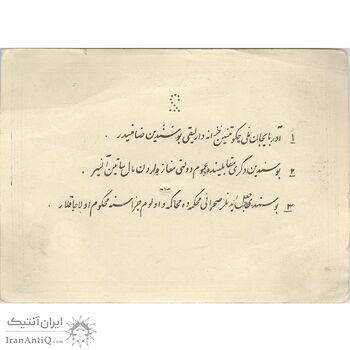 ۱ آذربایجان ملی حکومتینین خزانه دارلیقی بو سندین ضامنیدیر .
۲ بو سندین دگری مقابلینده عموم دولتی مغازه لردن مال ساتین آلینیر .
۳ بو سندی جعل ایدنلر صحرائی محکمه ده محاکمه و اولوم جزاسنه محکوم اولاجاقلار .
ایران آنتیک
IranAntiQ.com